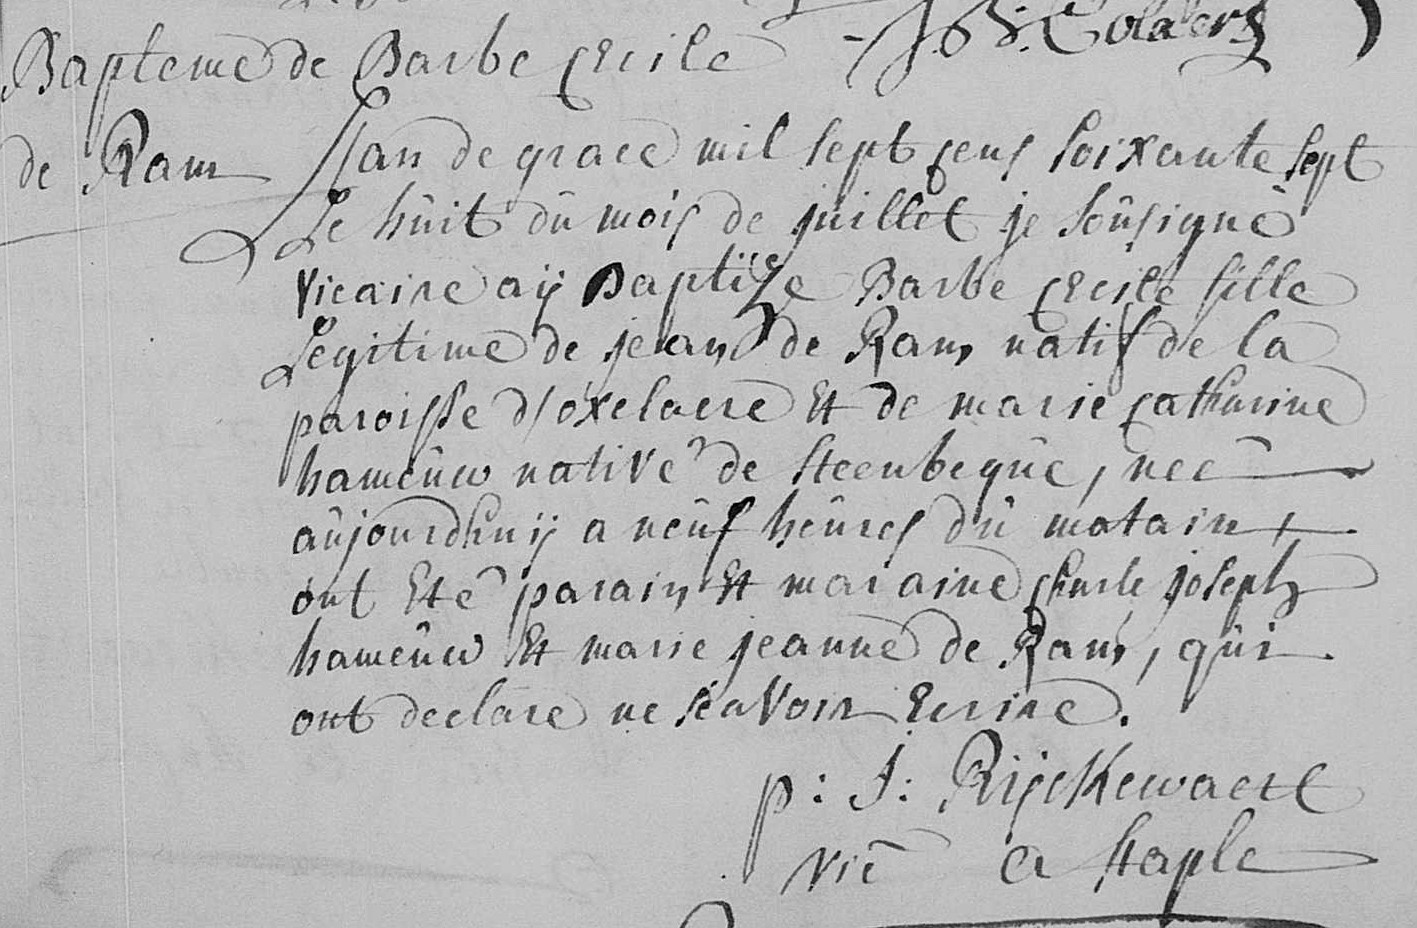 J. B. Colaers
Bapteme de Barbe Cecile
de Ram
L'an de grace mil sept cens soixante sept
Le hûit dû mois de juillet je soûsigné
vicaire aÿ Baptize Barbe Cecile fille
Legitime de jean de Ram natif de la
paroisse d'oxelaere Et de marie Catharine
hameûw native de steenbeqûe, neé
aûjourdhuÿ a neûf heûres dû matain,
ont Eté parain Et maraine Charle joseph
hameûw Et marie jeanne de Ram, qûi
ont declare ne scavoir Ecrire.
p: J: Rÿckewaert
vic a staple